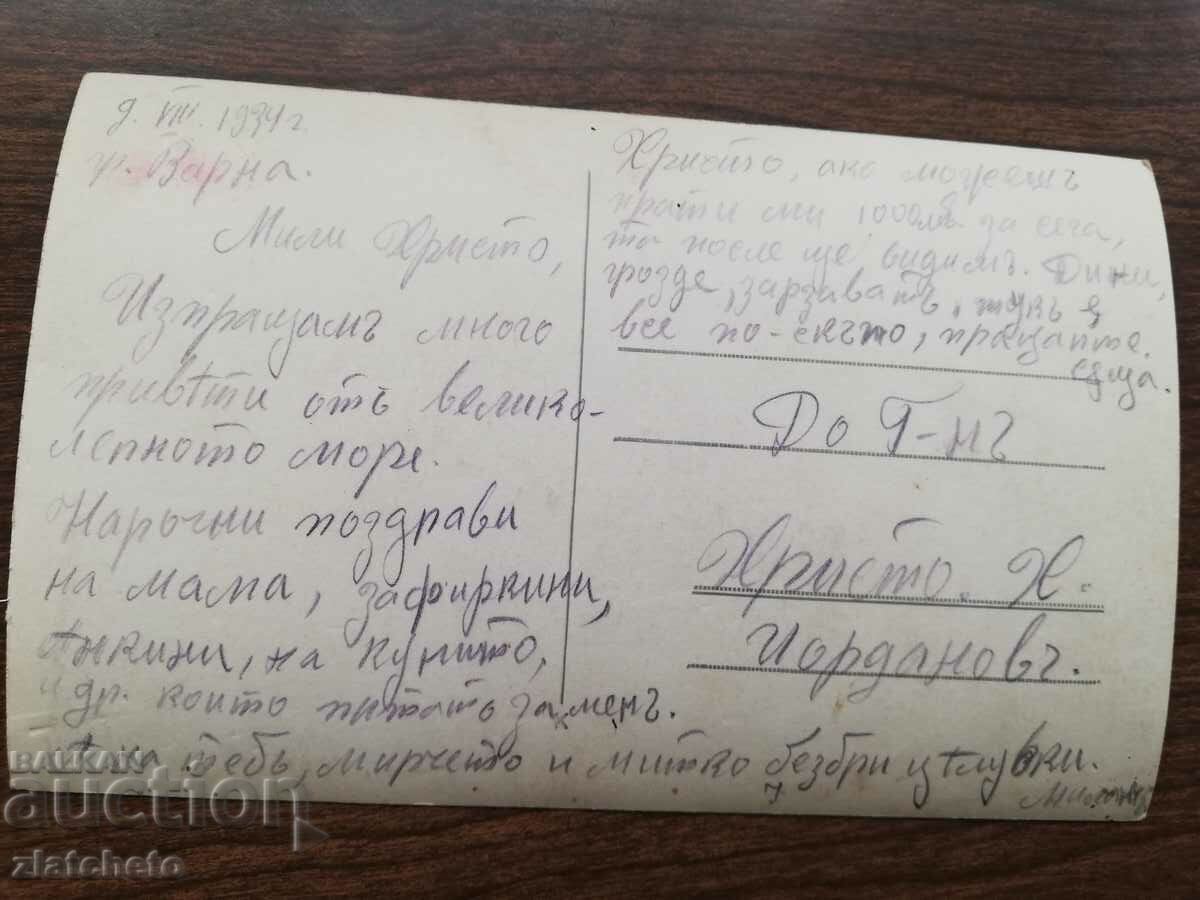 9. VIII. 1934 г.
гр. Варна.
Мили Христо,
Изпращамъ много
привѣти отъ велико-
лепното море.
Наръчни поздрави
на мама, зафиркини,
Анкини, на
и др. които питатъ за менъ.
на тебъ, мирчето и митко безбрй цѣлувки.
Христо, ако можешъ
прати ми 1000лв за сега,
та после ще видимъ. Дини,
грозде, зарзаватъ, тукъ е
все по-скъпо, пращайте.
съща.
До Г-нъ
Христо. Х.
Иордановъ.
BALKAN
auction
zlatcheto